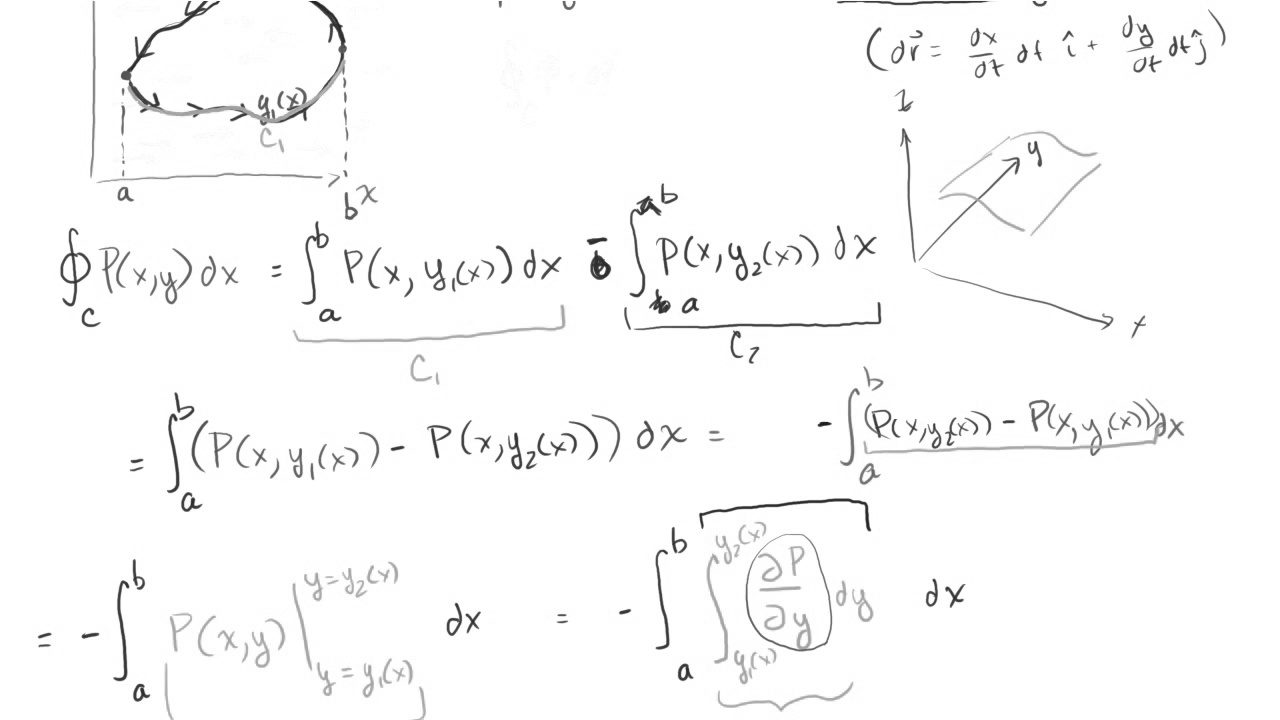 (dr⃗ = dx/dt dt î + dy/dt dt ĵ)
y₁(x)
C₁
a
b
x
z
y
x
∮_C P(x,y) dx = ∫_a^b P(x, y₁(x)) dx - ∫_a^b P(x, y₂(x)) dx
C₁
C₂
= ∫_a^b (P(x, y₁(x)) - P(x, y₂(x))) dx = - ∫_a^b (P(x, y₂(x)) - P(x, y₁(x))) dx
= - ∫_a^b P(x,y) |_{y = y₁(x)}^{y = y₂(x)} dx = - ∫_a^b ∫_{y₁(x)}^{y₂(x)} ∂P/∂y dy dx